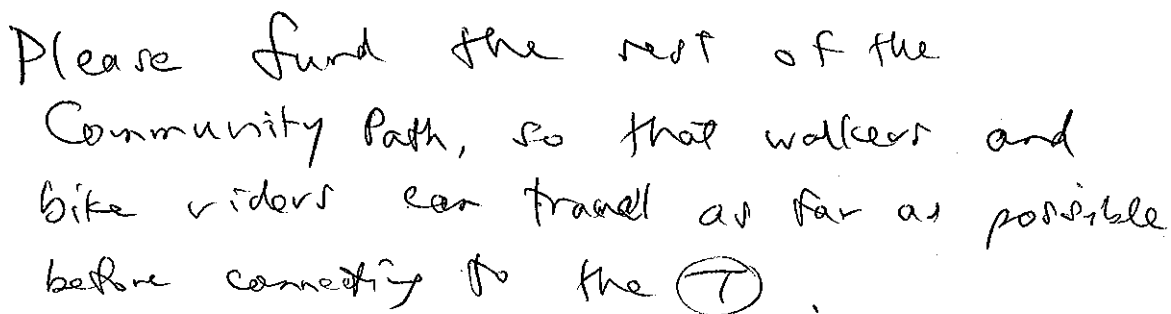 Please fund the rest of the
Community Path, so that walkers and
bike riders can travel as far as possible
before connecting to the T.